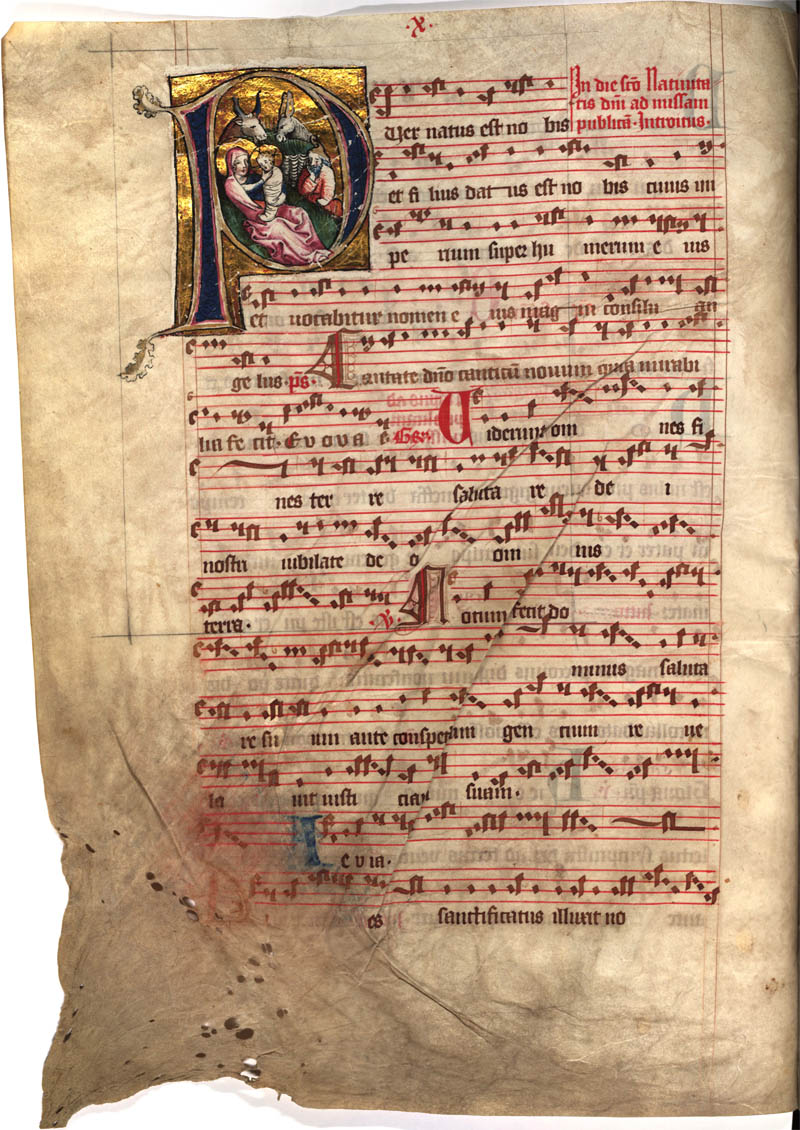 .x.
Puer natus est no bis In die sco Natiuita
tis dni ad missam
publica. Introitus.
et fi lius dat us est no bis cuius im
pe rium super hu merum e ius
et uocabitur nomen e ius mag ni consilii an
ge lus ps Cantate dno canticu nouum quia mirabi
lia fe cit. E v o v a e Uiderunt om nes fi
nes ter re saluta re de i
nostri iubilate de o om nis
terra. V. Notum fecit do
minus saluta
re su um ante conspectum gen cium re ue
la uit iusti ciam suam.
le v ia.
es sanctificatus illuxit no